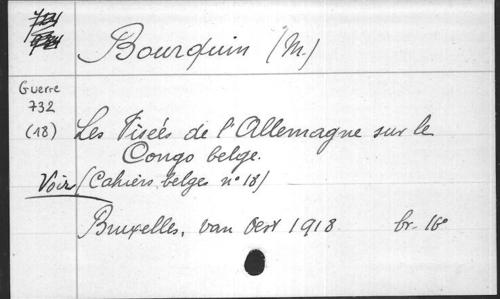 Bourquin (M.)
Guerre
732
(18)
Les Visées de l'Allemagne sur le
Congo belge.
Voir (Cahiers belges n° 18)
Bruxelles, van Oest 1918 br. 16°